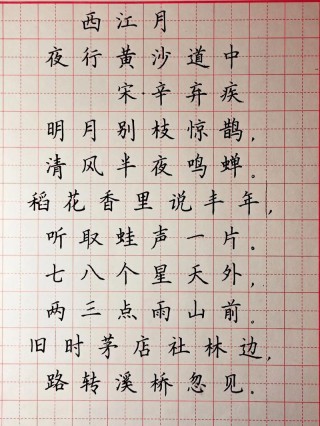 西江月
夜行黄沙道中
宋·辛弃疾
明月别枝惊鹊，
清风半夜鸣蝉。
稻花香里说丰年，
听取蛙声一片。
七八个星天外，
两三点雨山前。
旧时茅店社林边，
路转溪桥忽见。